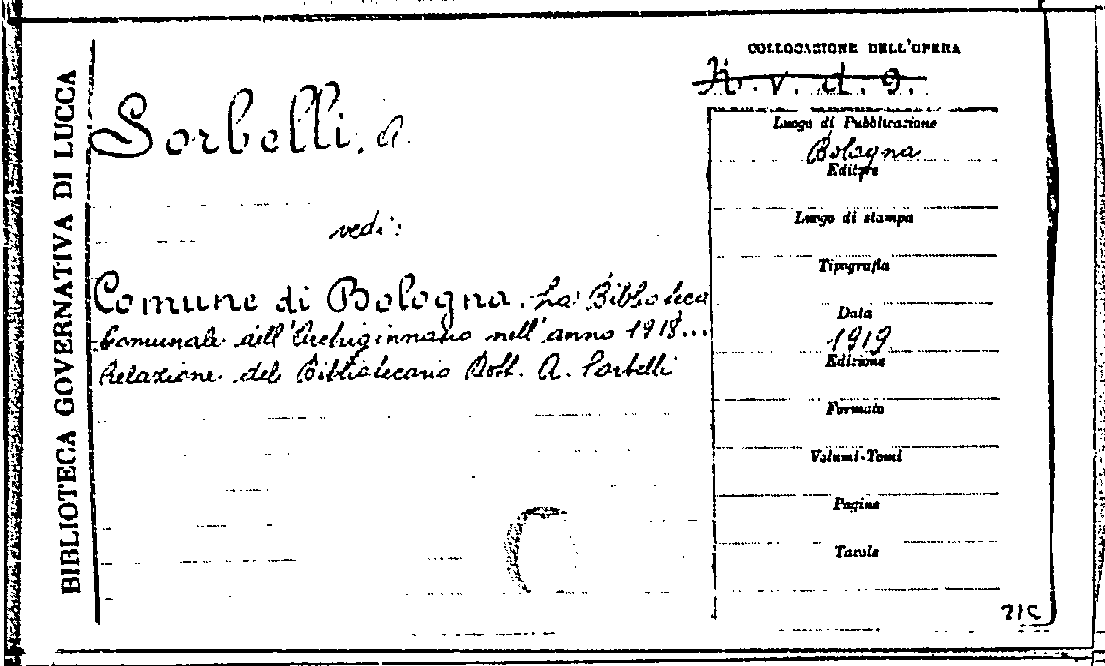 BIBLIOTECA GOVERNATIVA DI LUCCA
Sorbelli, A.
vedi:
Comune di Bologna. La Biblioteca
Comunale dell'Archiginnasio nell'anno 1918...
Relazione del Bibliotecario Dott. A. Sorbelli
COLLOCAZIONE DELL'OPERA
v. d. 9.
Luogo di Pubblicazione
Bologna
Editore
Luogo di stampa
Tipografia
Data
1919
Edizione
Formato
Volumi-Tomi
Pagine
Tavole